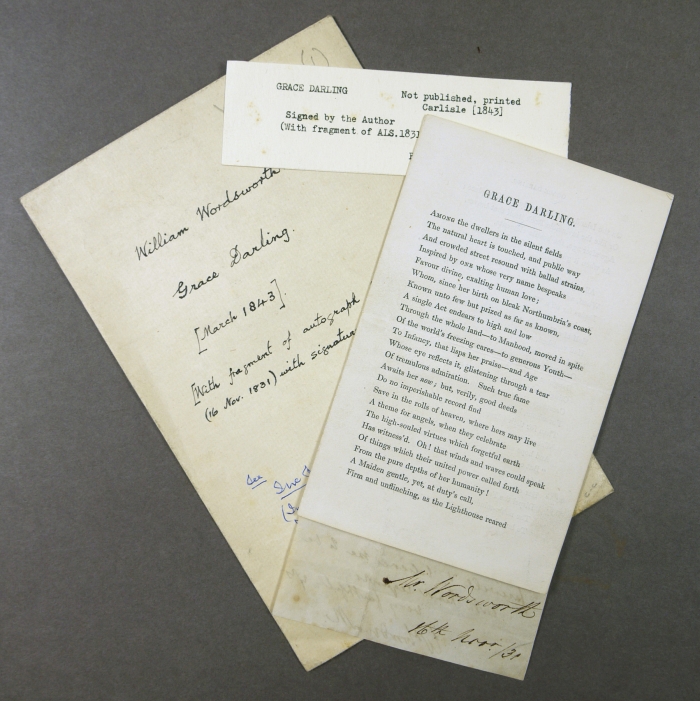 GRACE DARLING Not published, printed
Carlisle [1843]
Signed by the Author
(With fragment of ALS.1831
William Wordsworth
Grace Darling.
[March 1843].
[With fragment of autograph
(16 Nov. 1831) with signature
See
GRACE DARLING.
AMONG the dwellers in the silent fields
The natural heart is touched, and public way
And crowded street resound with ballad strains,
Inspired by ONE whose very name bespeaks
Favour divine, exalting human love;
Whom, since her birth on bleak Northumbria's coast,
Known unto few but prized as far as known,
A single Act endears to high and low
Through the whole land—to Manhood, moved in spite
Of the world's freezing cares—to generous Youth—
To Infancy, that lisps her praise—and Age
Whose eye reflects it, glistening through a tear
Of tremulous admiration. Such true fame
Awaits her now; but, verily, good deeds
Do no imperishable record find
Save in the rolls of heaven, where hers may live
A theme for angels, when they celebrate
The high-souled virtues which forgetful earth
Has witness'd. Oh! that winds and waves could speak
Of things which their united power called forth
From the pure depths of her humanity!
A Maiden gentle, yet, at duty's call,
Firm and unflinching, as the Lighthouse reared
Wm. Wordsworth
16th Novr. /31